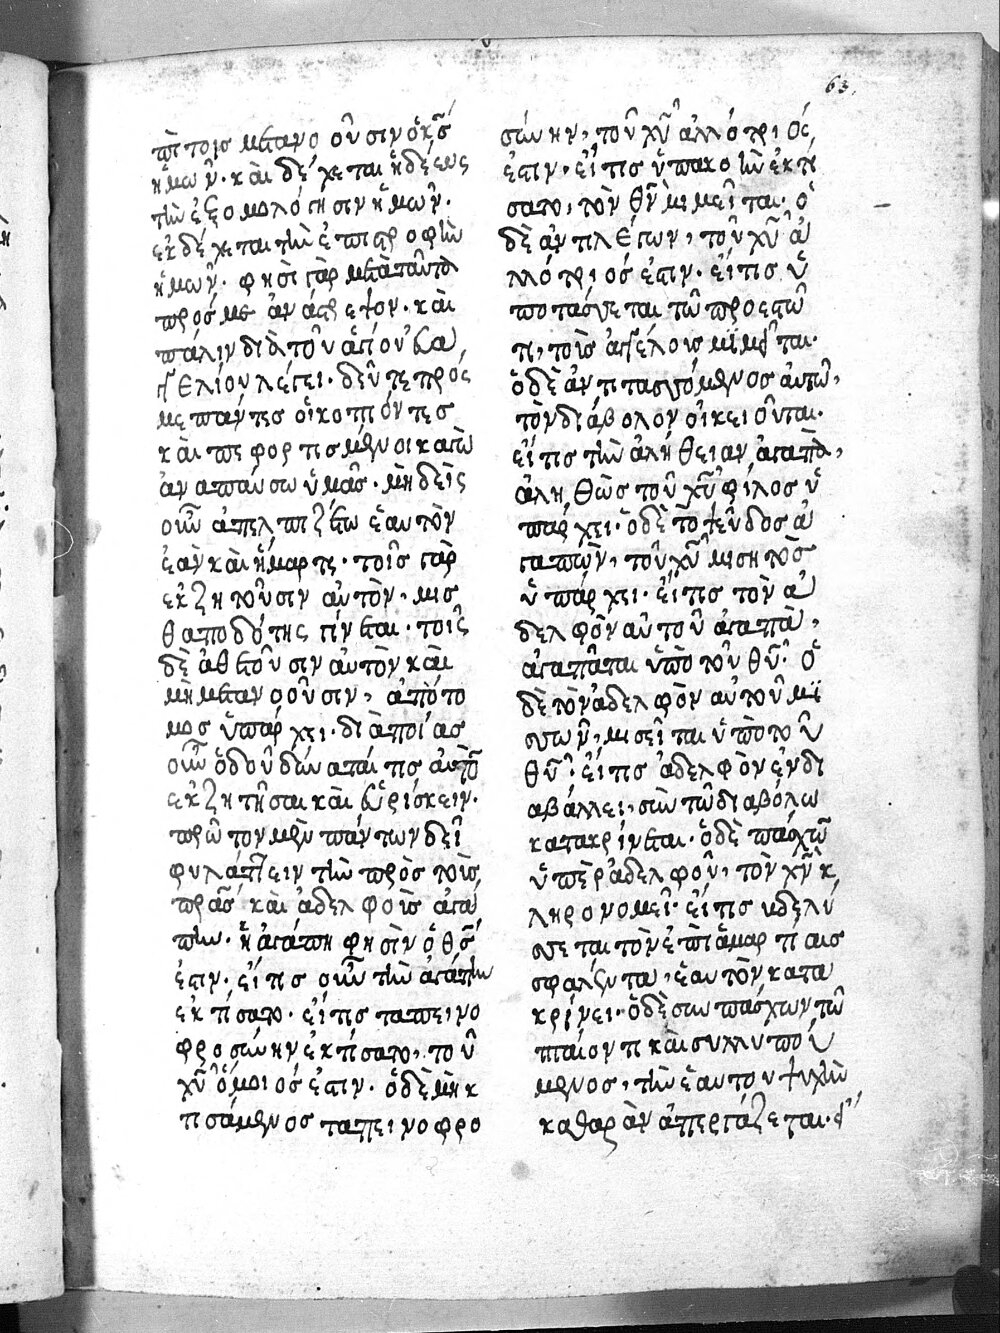 63
ἐπὶ τοῖς μετανοοῦσιν ὁ κ̅ς̅
ἡμῶν· καὶ δέχεται ἡδέως
τὴν ἐξομολόγησιν ἡμῶν·
ἐκδέχεται τὴν ἐπιστροφὴν
ἡμῶν· φησὶ γὰρ μετὰ ταῦτα
πρός με ἀνάστρεψον· καὶ
πάλιν διὰ τοῦ ἁγίου εὐα
γγελίου λέγει· δεῦτε πρός
με πάντες οἱ κοπιόντες
καὶ πεφορτισμένοι καγὼ
ἀναπαύσω ὑμᾶς· μηδεὶς
οὖν ἀπελπιζέτω ἑαυτὸν
ἐὰν καὶ ἥμαρτε· τοῖς γὰρ
ἐκζητοῦσιν αὐτὸν, μισ
θαποδότης γίνεται· τοῖς
δὲ ἀθετοῦσιν αὐτὸν καὶ
μὴ μετανοοῦσιν, ἀπότο
μος ὑπάρχει· διὰ ποίας
οὖν ὁδοῦ δύναταί τις αὐτὸν
ἐκζητῆσαι καὶ εὑρίσκειν·
πρῶτον μὲν πάντων δεῖ
φυλάττειν τὴν πρὸς τοὺς
π̅ρ̅α̅ς̅ καὶ ἀδελφοὺς ἀγά
πην· ἡ ἀγάπη φησὶν ὁ θ̅ς̅
ἐστιν· εἴ τις οὖν τὴν ἀγάπην
ἐκτήσατο· εἴ τις ταπεινο
φροσύνην ἐκτήσατο, τοῦ
χ̅υ̅ ὅμοιός ἐστιν· ὁ δὲ μὴ κ
τισάμενος ταπεινοφρο
σύνην, τοῦ χ̅υ̅ ἀλλότριός
ἐστιν· εἴ τις ὑπακοὴν ἐκτή
σατο, τὸν θ̅ν̅ μιμεῖται· ὁ
δὲ ἀντιλέγων, τοῦ χ̅υ̅ ἀ
λλότριός ἐστιν· εἴ τις ὑ
ποτάσσεται τῶ προεστῶ
τι, τοὺς ἀγγέλους μιμεῖται·
ὁ δὲ ἀντιτασσόμενος αὐτῶ,
τὸν διάβολον οἰκειοῦται·
εἴ τις τὴν ἀλήθειαν ἀγαπᾶ,
ἀληθῶς τοῦ χ̅υ̅ φίλος ὑ
πάρχει· ὁ δὲ τὸ ψεῦδος ἀ
γαπῶν, τοῦ χ̅υ̅ μισητὸς
ὑπάρχει· εἴ τις τὸν ἀ
δελφὸν αὐτοῦ ἀγαπᾶ,
ἀγαπᾶται ὑπὸ τοῦ θ̅υ̅· ὁ
δὲ τὸν ἀδελφὸν αὐτοῦ μϊ
σῶν, μισεῖται ὑπὸ τοῦ
θ̅υ̅· εἴ τις ἀδελφὸν ἐνδι
αβάλλει, σὺν τῶ διαβόλω
κατακρίνεται· ὁ δὲ πάσχων
ὑπὲρ ἀδελφοῦ, τὸν χ̅ν̅ κ
ληρονομεῖ· εἴ τις βδελύ
σσεται τὸν ἐπὶ ἁμαρτίαις
σφαλέντα, ἑαυτὸν κατα
κρίνει· ὁ δὲ συμπάσχων τῶ
πταίοντι καὶ συλλυπού
μενος, τὴν ἑαυτοῦ ψυχὴν
καθαρὰν ἀπεργάζεται· εἴ